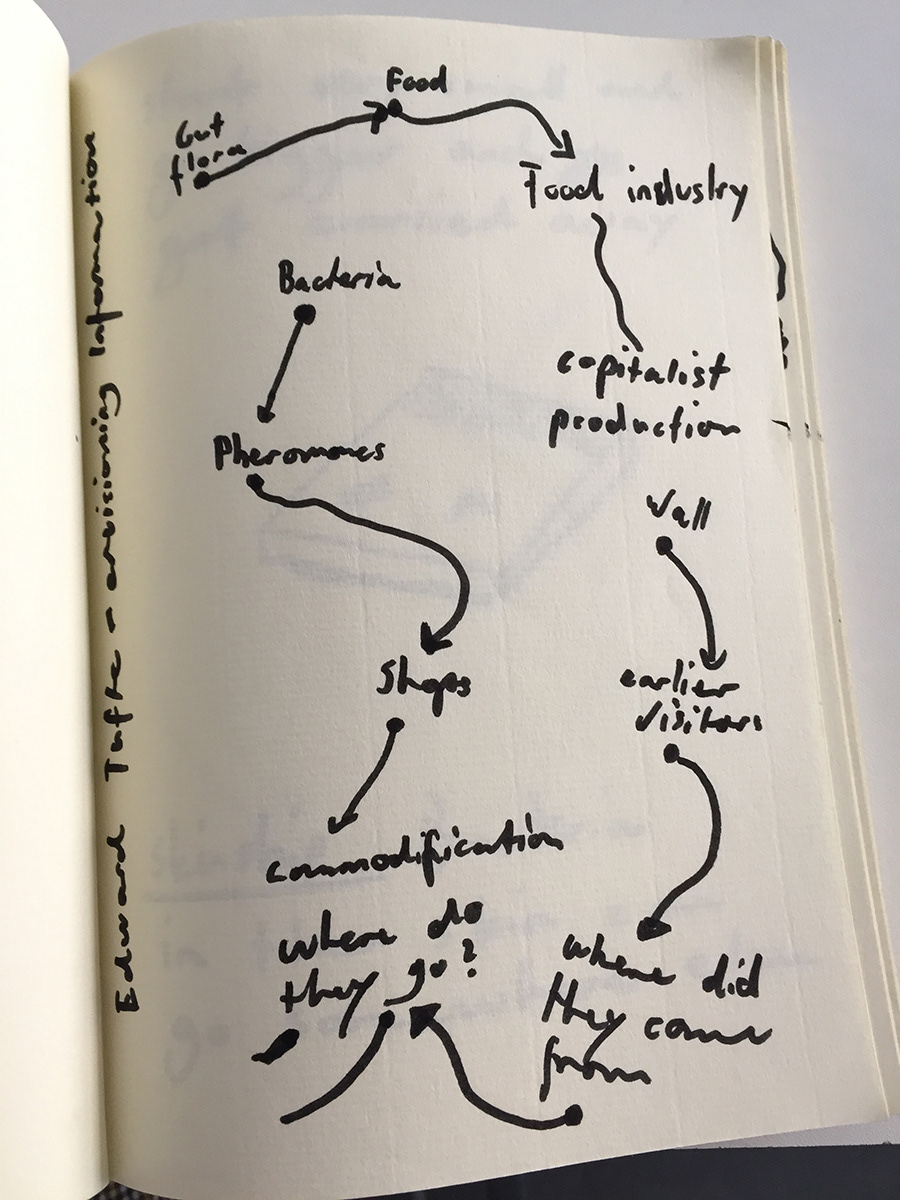 Food
Gut
flora
Food industry
Bacteria
capitalist
production
Pheromones
Wall
Shops
earlier
visitors
commodification
where do
they go?
where did
they come
from
Edward Tufte - envisioning Information